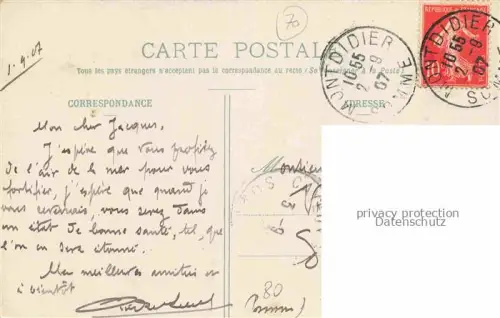 70
1.9.07
CARTE POSTALE
Tous les pays étrangers n'acceptent pas la correspondance au recto (Se renseigner à la Poste)
CORRESPONDANCE
ADRESSE
MONTDIDIER
10 55
2 -9
07
SOMME
REPUBLIQUE FRANÇAISE
10
MONTDIDIER
10 55
2 -9
07
Mon cher Jacques,
J'espère que vous profitez
de l'air de la mer pour vous
fortifier, j'espère que quand je
vous reverrais, vous serez dans
un état de bonne santé, tel, que
l'on en sera étonné.
Mes meilleures amitiés et
à bientôt
Monsieur
3 -9
80
(Somme)
privacy protection
Datenschutz